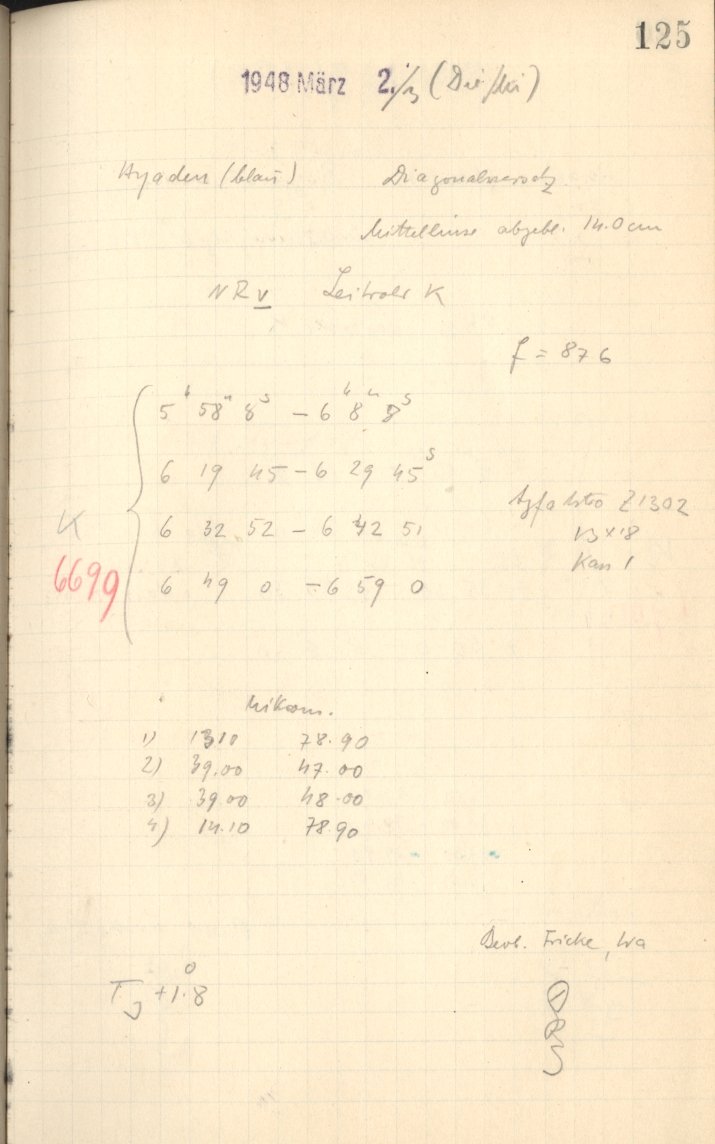 125
1948 März 2./3 (Die/Mi)
Hyaden (blau) Diagonalversatz
Mittellinse abgebl. 14.0 cm
NR V Leitrohr K
f = 876
5h 58m 8s – 6h 8m 8s
6 19 45 – 6 29 45s
6 32 52 – 6 42 51
6 49 0 – 6 59 0
K
6699
Agfa Astro Z1302
13 x 18
Kass 1
Mikrom.
1) 13 10 78.90
2) 39.00 47.00
3) 39.00 48.00
4) 14.10 78.90
Beob. Fricke, Wa
TJ +1.8°